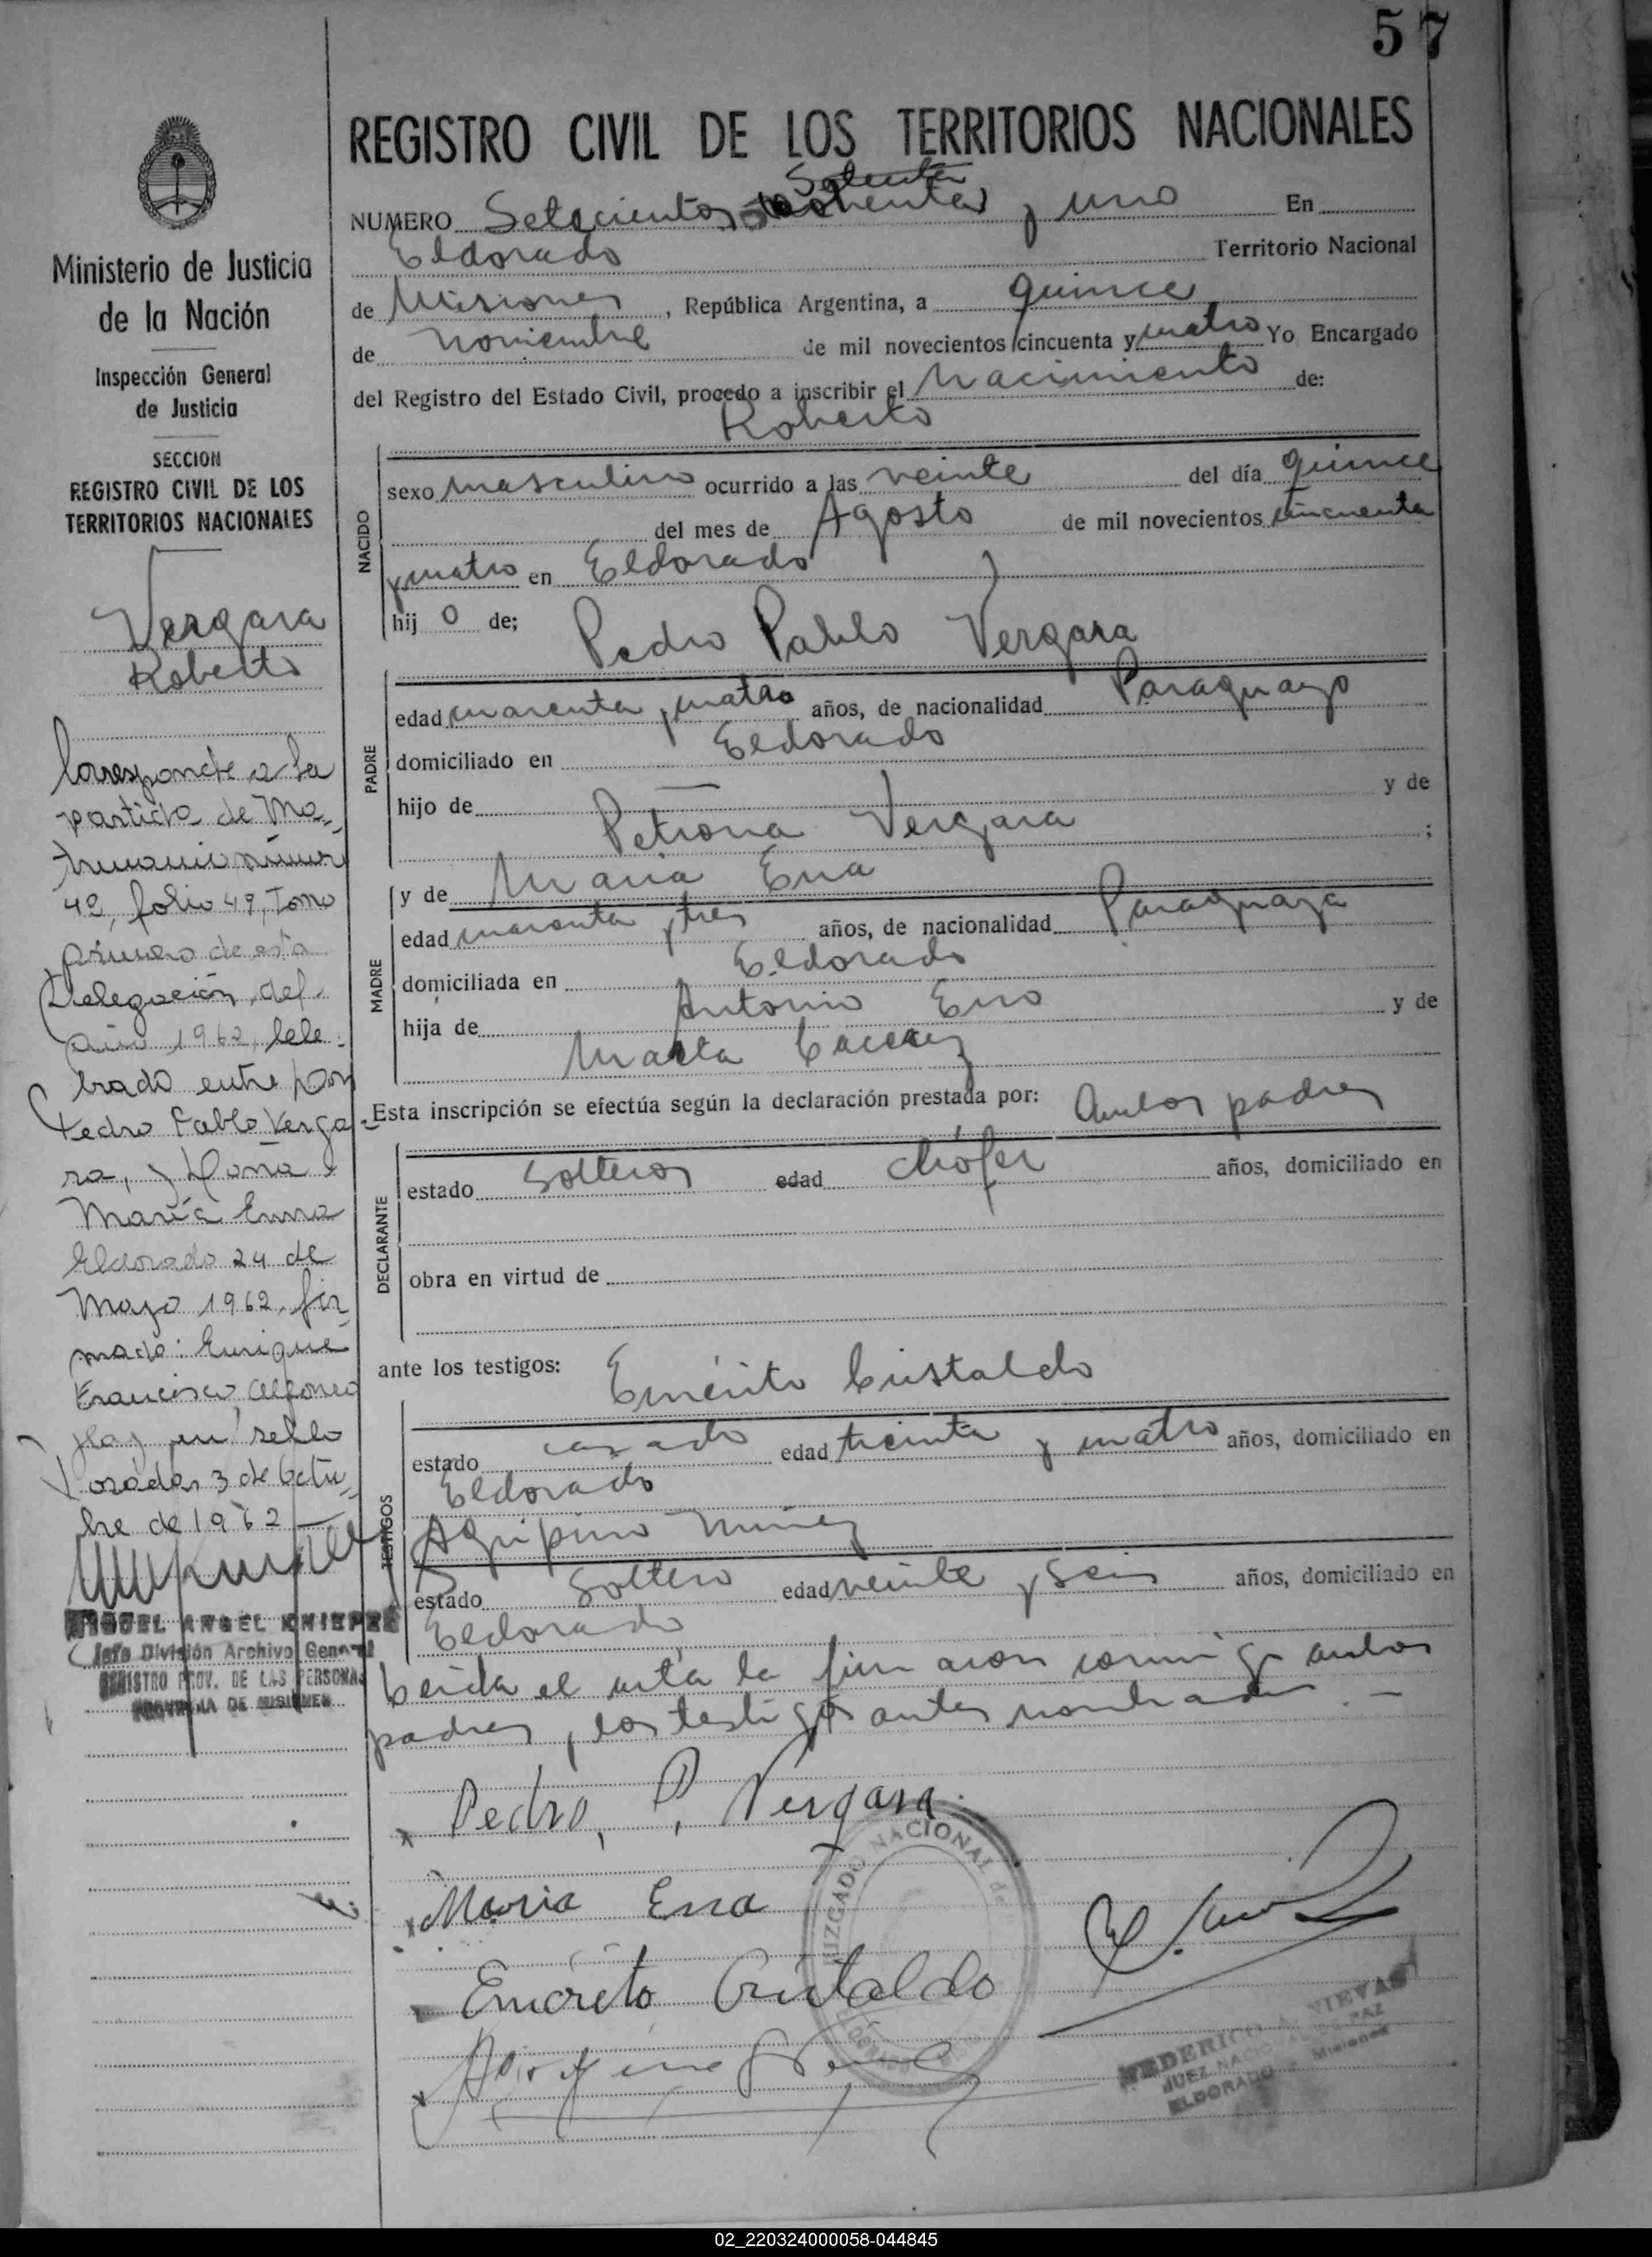 57
REGISTRO CIVIL DE LOS TERRITORIOS NACIONALES
Setenta
NUMERO Setecientos y uno En
Eldorado Territorio Nacional
de Misiones, República Argentina, a quince
de noviembre de mil novecientos cincuenta y cuatro Yo Encargado
del Registro del Estado Civil, procedo a inscribir el Nacimiento de:
Roberto
NACIDO
sexo masculino ocurrido a las veinte del día quince
del mes de Agosto de mil novecientos cincuenta
y cuatro en Eldorado
hijo de;
Pedro Pablo Vergara
PADRE
edad cuarenta y cuatro años, de nacionalidad Paraguayo
domiciliado en Eldorado
hijo de — y de
Petrona Vergara ;
y de Maria Ena
MADRE
edad cuarenta y tres años, de nacionalidad Paraguaya
domiciliada en Eldorado
hija de Antonio Eno y de
Marta
Esta inscripción se efectúa según la declaración prestada por: Ambos padres
DECLARANTE
estado Solteros edad chófer años, domiciliado en
obra en virtud de
ante los testigos: Emérito Cristaldo
TESTIGOS
estado casado edad treinta y cuatro años, domiciliado en
Eldorado
Agripino Nuñez
estado Soltero edad veinte y seis años, domiciliado en
Eldorado
Leida el acta la firmaron conmigo ambos
padres, los testigos antes nombrados. —
Pedro, P, Vergara.
Maria Ena
Emérito Cristaldo
JUZGADO NACIONAL de
ELDORADO
FEDERICO A. NIEVAS
JUEZ NACIONAL DE PAZ
ELDORADO - Misiones
Ministerio de Justicia
de la Nación
Inspección General
de Justicia
SECCION
REGISTRO CIVIL DE LOS
TERRITORIOS NACIONALES
Vergara
Roberto
Corresponde a la
partida de Ma-
trimonio número
42, folio 49, Tomo
primero de esta
Delegación, del
año 1962, cele-
brado entre Don
Pedro Pablo Verga-
ra, y Doña
María Enna
Eldorado 24 de
Mayo 1962. fir
mado: Enrique
Francisco Alfonso
Hay un sello
Posadas 3 de Octu-
bre de 1962 —
MIGUEL ANGEL KNIEPRE
Jefe División Archivo General
REGISTRO PROV. DE LAS PERSONAS
PROVINCIA DE MISIONES
02_220324000058-044845